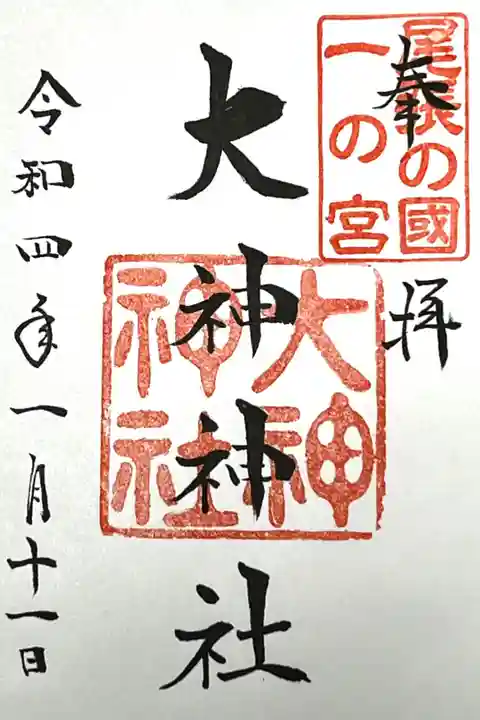 奉拝
尾張の國
一の宮
大神神社
大神
神社
令和四年一月十一日